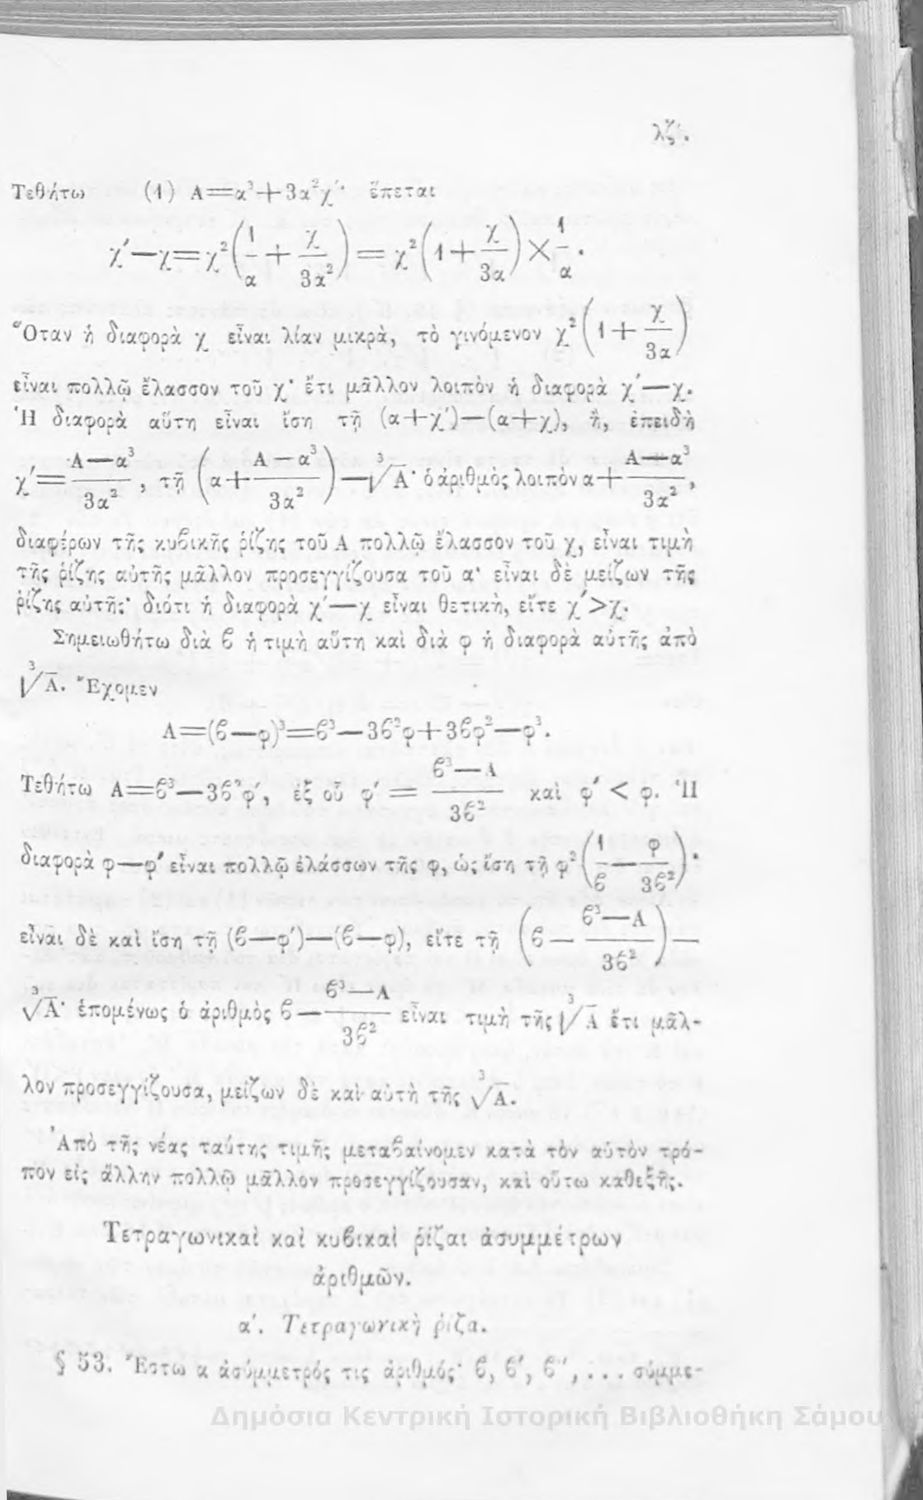 λζ'.
Τεθήτω (1) Α=α³+3α²χ'· ἕπεται
χ'—χ=χ²(1/α + χ/3α²) = χ²(1+χ/3α)×1/α·
Ὅταν ἡ διαφορὰ χ εἶναι λίαν μικρὰ, τὸ γινόμενον χ²(1+χ/3α)
εἶναι πολλῷ ἔλασσον τοῦ χ· ἔτι μᾶλλον λοιπὸν ἡ διαφορὰ χ'—χ.
Ἡ διαφορὰ αὕτη εἶναι ἴση τῇ (α+χ')—(α+χ), ἢ, ἐπειδὴ
χ'=Α—α³/3α², τῇ (α+Α—α³/3α²)—³√Α· ὁ ἀριθμὸς λοιπὸν α+Α—α³/3α²,
διαφέρων τῆς κυβικῆς ῥίζης τοῦ Α πολλῷ ἔλασσον τοῦ χ, εἶναι τιμὴ
τῆς ῥίζης αὐτῆς μᾶλλον προσεγγίζουσα τοῦ α· εἶναι δὲ μείζων τῆς
ῥίζης αὐτῆς· διότι ἡ διαφορὰ χ'—χ εἶναι θετικὴ, εἴτε χ'>χ.
Σημειωθήτω διὰ ϐ ἡ τιμὴ αὕτη καὶ διὰ φ ἡ διαφορὰ αὐτῆς ἀπὸ
³√Α. Ἔχομεν
Α=(ϐ—φ)³=ϐ³—3ϐ²φ+3ϐφ²—φ³.
Τεθήτω Α=ϐ³—3ϐ²φ', ἐξ οὗ φ' = ϐ³—Α/3ϐ² καὶ φ' < φ. Ἡ
διαφορὰ φ—φ' εἶναι πολλῷ ἐλάσσων τῆς φ, ὡς ἴση τῇ φ²(1/ϐ—φ/3ϐ²)·
εἶναι δὲ καὶ ἴση τῇ (ϐ—φ')—(ϐ—φ), εἴτε τῇ (ϐ—ϐ³—Α/3ϐ²)—
³√Α· ἑπομένως ὁ ἀριθμὸς ϐ—ϐ³—Α/3ϐ² εἶναι τιμὴ τῆς ³√Α ἔτι μᾶλ-
λον προσεγγίζουσα, μείζων δὲ καὶ αὐτὴ τῆς ³√Α.
Ἀπὸ τῆς νέας ταύτης τιμῆς μεταβαίνομεν κατὰ τὸν αὐτὸν τρό-
πον εἰς ἄλλην πολλῷ μᾶλλον προσεγγίζουσαν, καὶ οὕτω καθεξῆς.
Τετραγωνικαὶ καὶ κυβικαὶ ῥίζαι ἀσυμμέτρων
ἀριθμῶν.
α'. Τετραγωνικὴ ῥίζα.
§ 53. Ἔστω α ἀσύμμετρός τις ἀριθμός· ϐ, ϐ', ϐ'', ... σύμμε-
Δημόσια Κεντρική Ιστορική Βιβλιοθήκη Σάμου